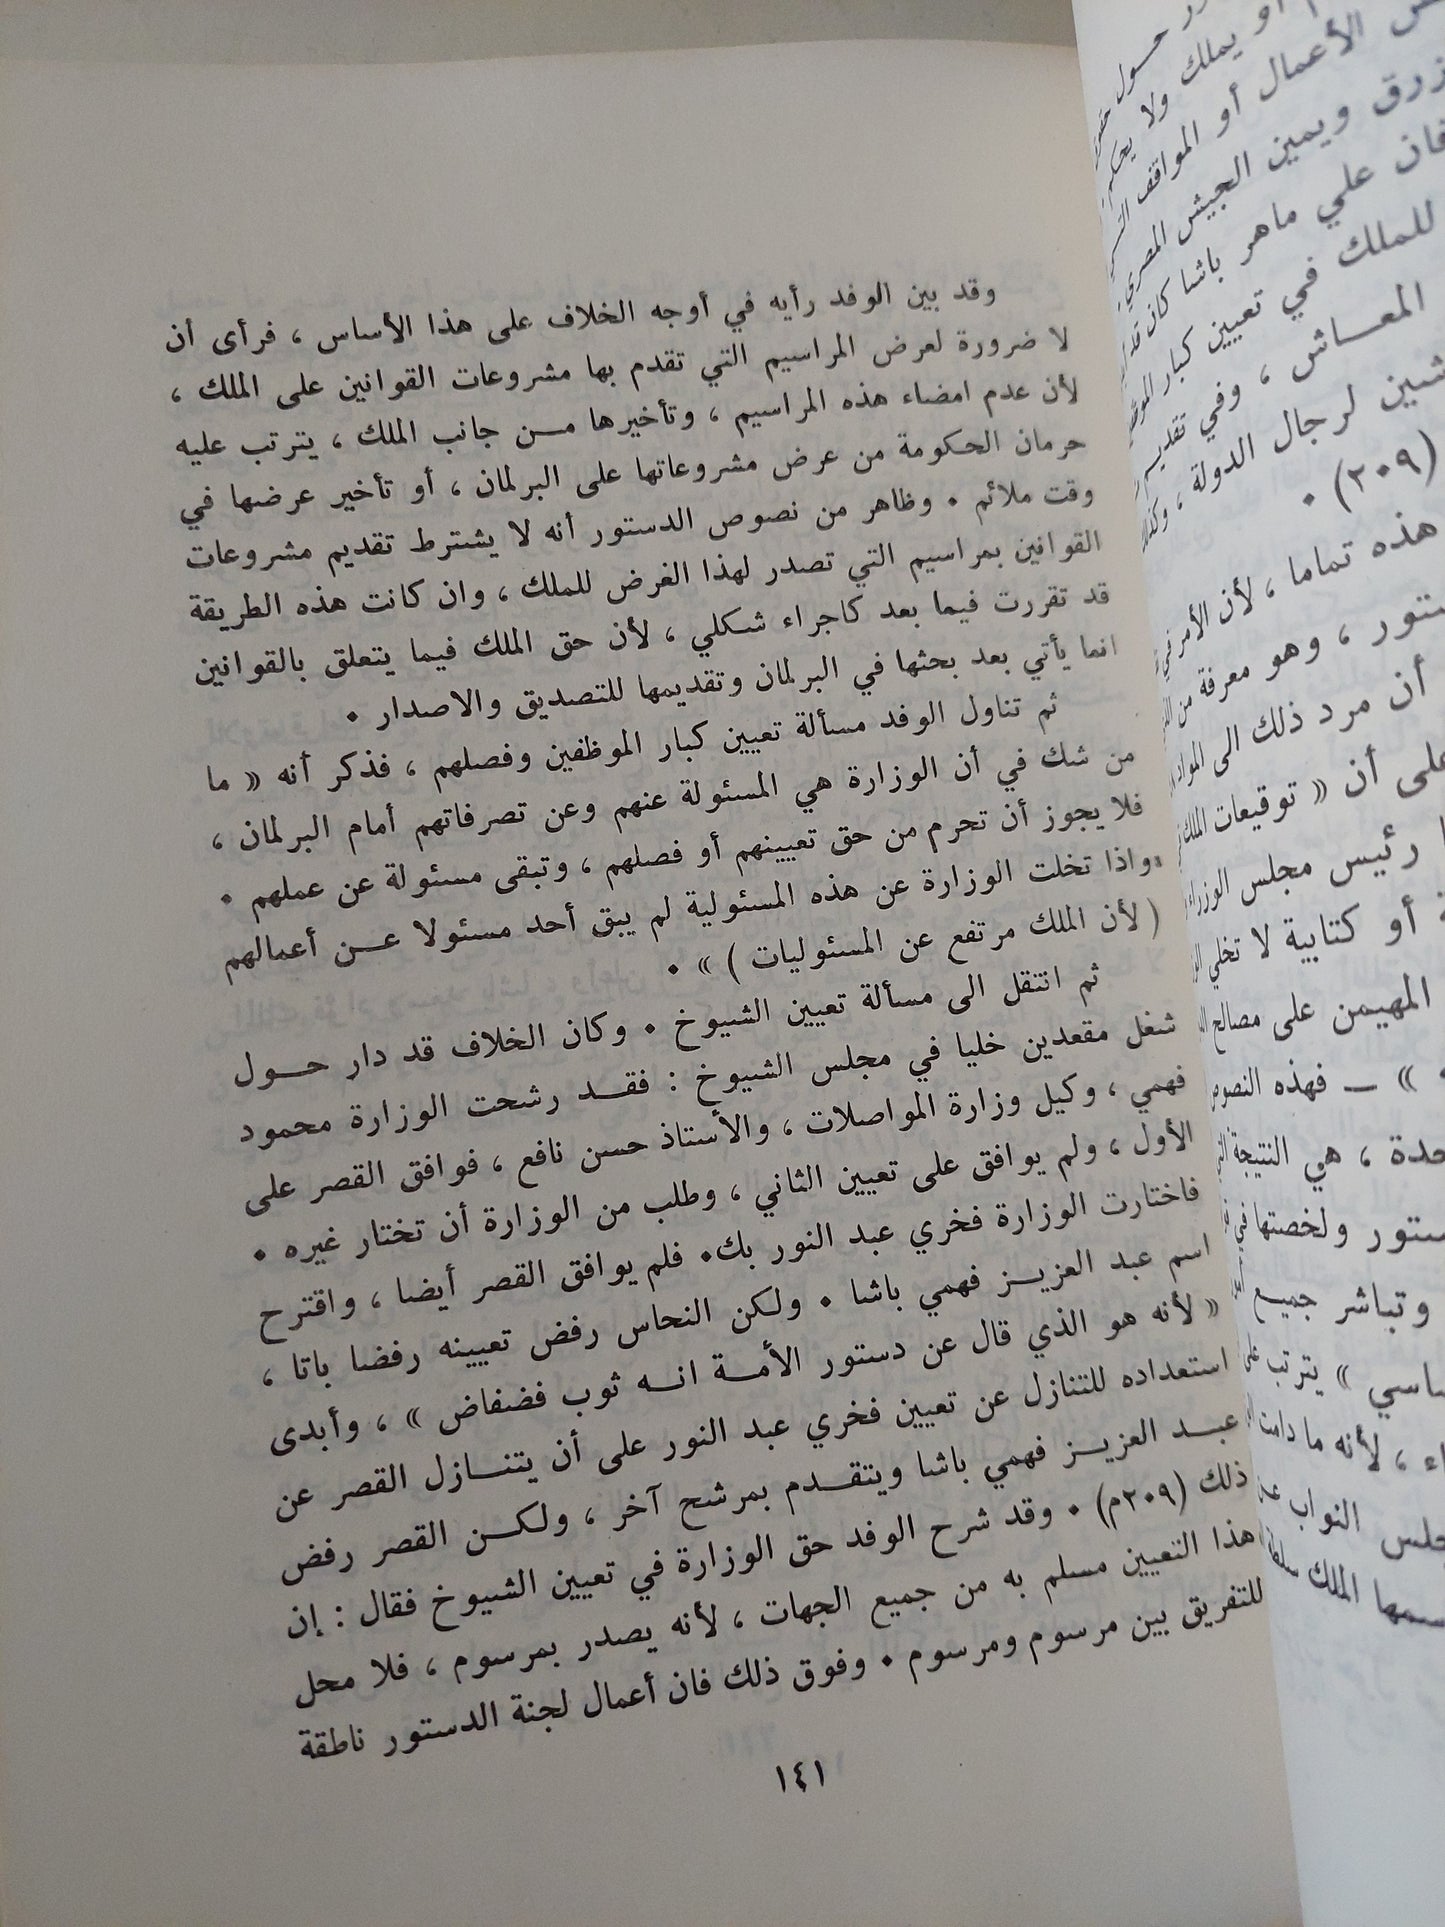 وقد بين الوفد رأيه في أوجه الخلاف على هذا الأساس ، فرأى أن
لا ضرورة لعرض المراسيم التي تقدم بها مشروعات القوانين على الملك ،
لأن عدم امضاء هذه المراسيم ، وتأخيرها مـــن جانب الملك ، يترتب عليه
حرمان الحكومة من عرض مشروعاتها على البرلمان ، أو تأخير عرضها في
وقت ملائم • وظاهر من نصوص الدستور أنه لا يشترط تقديم مشروعات
القوانين بمراسيم التي تصدر لهذا الغرض للملك ، وان كانت هذه الطريقة
قد تقررت فيما بعد كاجراء شكلي ، لأن حق الملك فيما يتعلق بالقوانين
انما يأتي بعد بحثها في البرلمان وتقديمها للتصديق والاصدار •
ثم تناول الوفد مسألة تعيين كبار الموظفين وفصلهم ، فذكر أنه « ما
من شك في أن الوزارة هي المسئولة عنهم وعن تصرفاتهم أمام البرلمان ،
فلا يجوز أن تحرم من حق تعيينهم أو فصلهم ، وتبقى مسئولة عن عملهم •
واذا تخلت الوزارة عن هذه المسئولية لم يبق أحد مسئولا عـــن أعمالهم
( لأن الملك مرتفع عن المسئوليات ) » •
ثم انتقل الى مسألة تعيين الشيوخ • وكان الخلاف قد دار حـــول
شغل مقعدين خليا في مجلس الشيوخ : فقـــد رشحت الوزارة محمود
فهمي ، وكيل وزارة المواصلات ، والأستاذ حسن نافع ، فوافق القصر على
الأول ، ولم يوافق على تعيين الثاني ، وطلب من الوزارة أن تختار غيره •
فاختارت الوزارة فخري عبد النور بك• فلم يوافق القصر أيضا ، واقترح
اسم عبد العزيـــز فهمي باشا • ولكن النحاس رفض تعيينه رفضا باتا ،
« لأنه هو الذي قال عن دستور الأمـــة انـــه ثوب فضفاض » ، وأبدى
استعداده للتنازل عن تعيين فخري عبد النور على أن يتنـــازل القصر عن
عبـــد العزيـــز فهمي باشا ويتقـــدم بمرشح آخر ، ولكـــن القصر رفض
ذلك (٢٠٩م) • وقد شرح الوفد حق الوزارة في تعيين الشيوخ فقال : إن
هذا التعيين مسلم به من جميع الجهات ، لأنه يصدر بمرسوم ، فلا محل
للتفريق بين مرسوم ومرسوم • وفوق ذلك فان أعمال لجنة الدستور ناطقة
١٤١
أو يملك ولا يحكم
الأعمال أو المواقف
ويمين الجيش المصري
علي ماهر باشا كان
للملك في تعيين كبار
المعـــاش ، وفي تقديم
لرجال الدولة ،
(٢٠٩) •
هذه تماما ، لأن الأمر
، وهو معرفة من
أن مرد ذلك الى
أن « توقيعات الملك
رئيس مجلس الوزراء
أو كتابية لا تخلي
المهيمن على مصالح
» ـــ فهذه النصوص
، هي النتيجة
ولخصتها في
وتباشر جميع
» يترتب على
، لأنه ما دامت
النواب
الملك